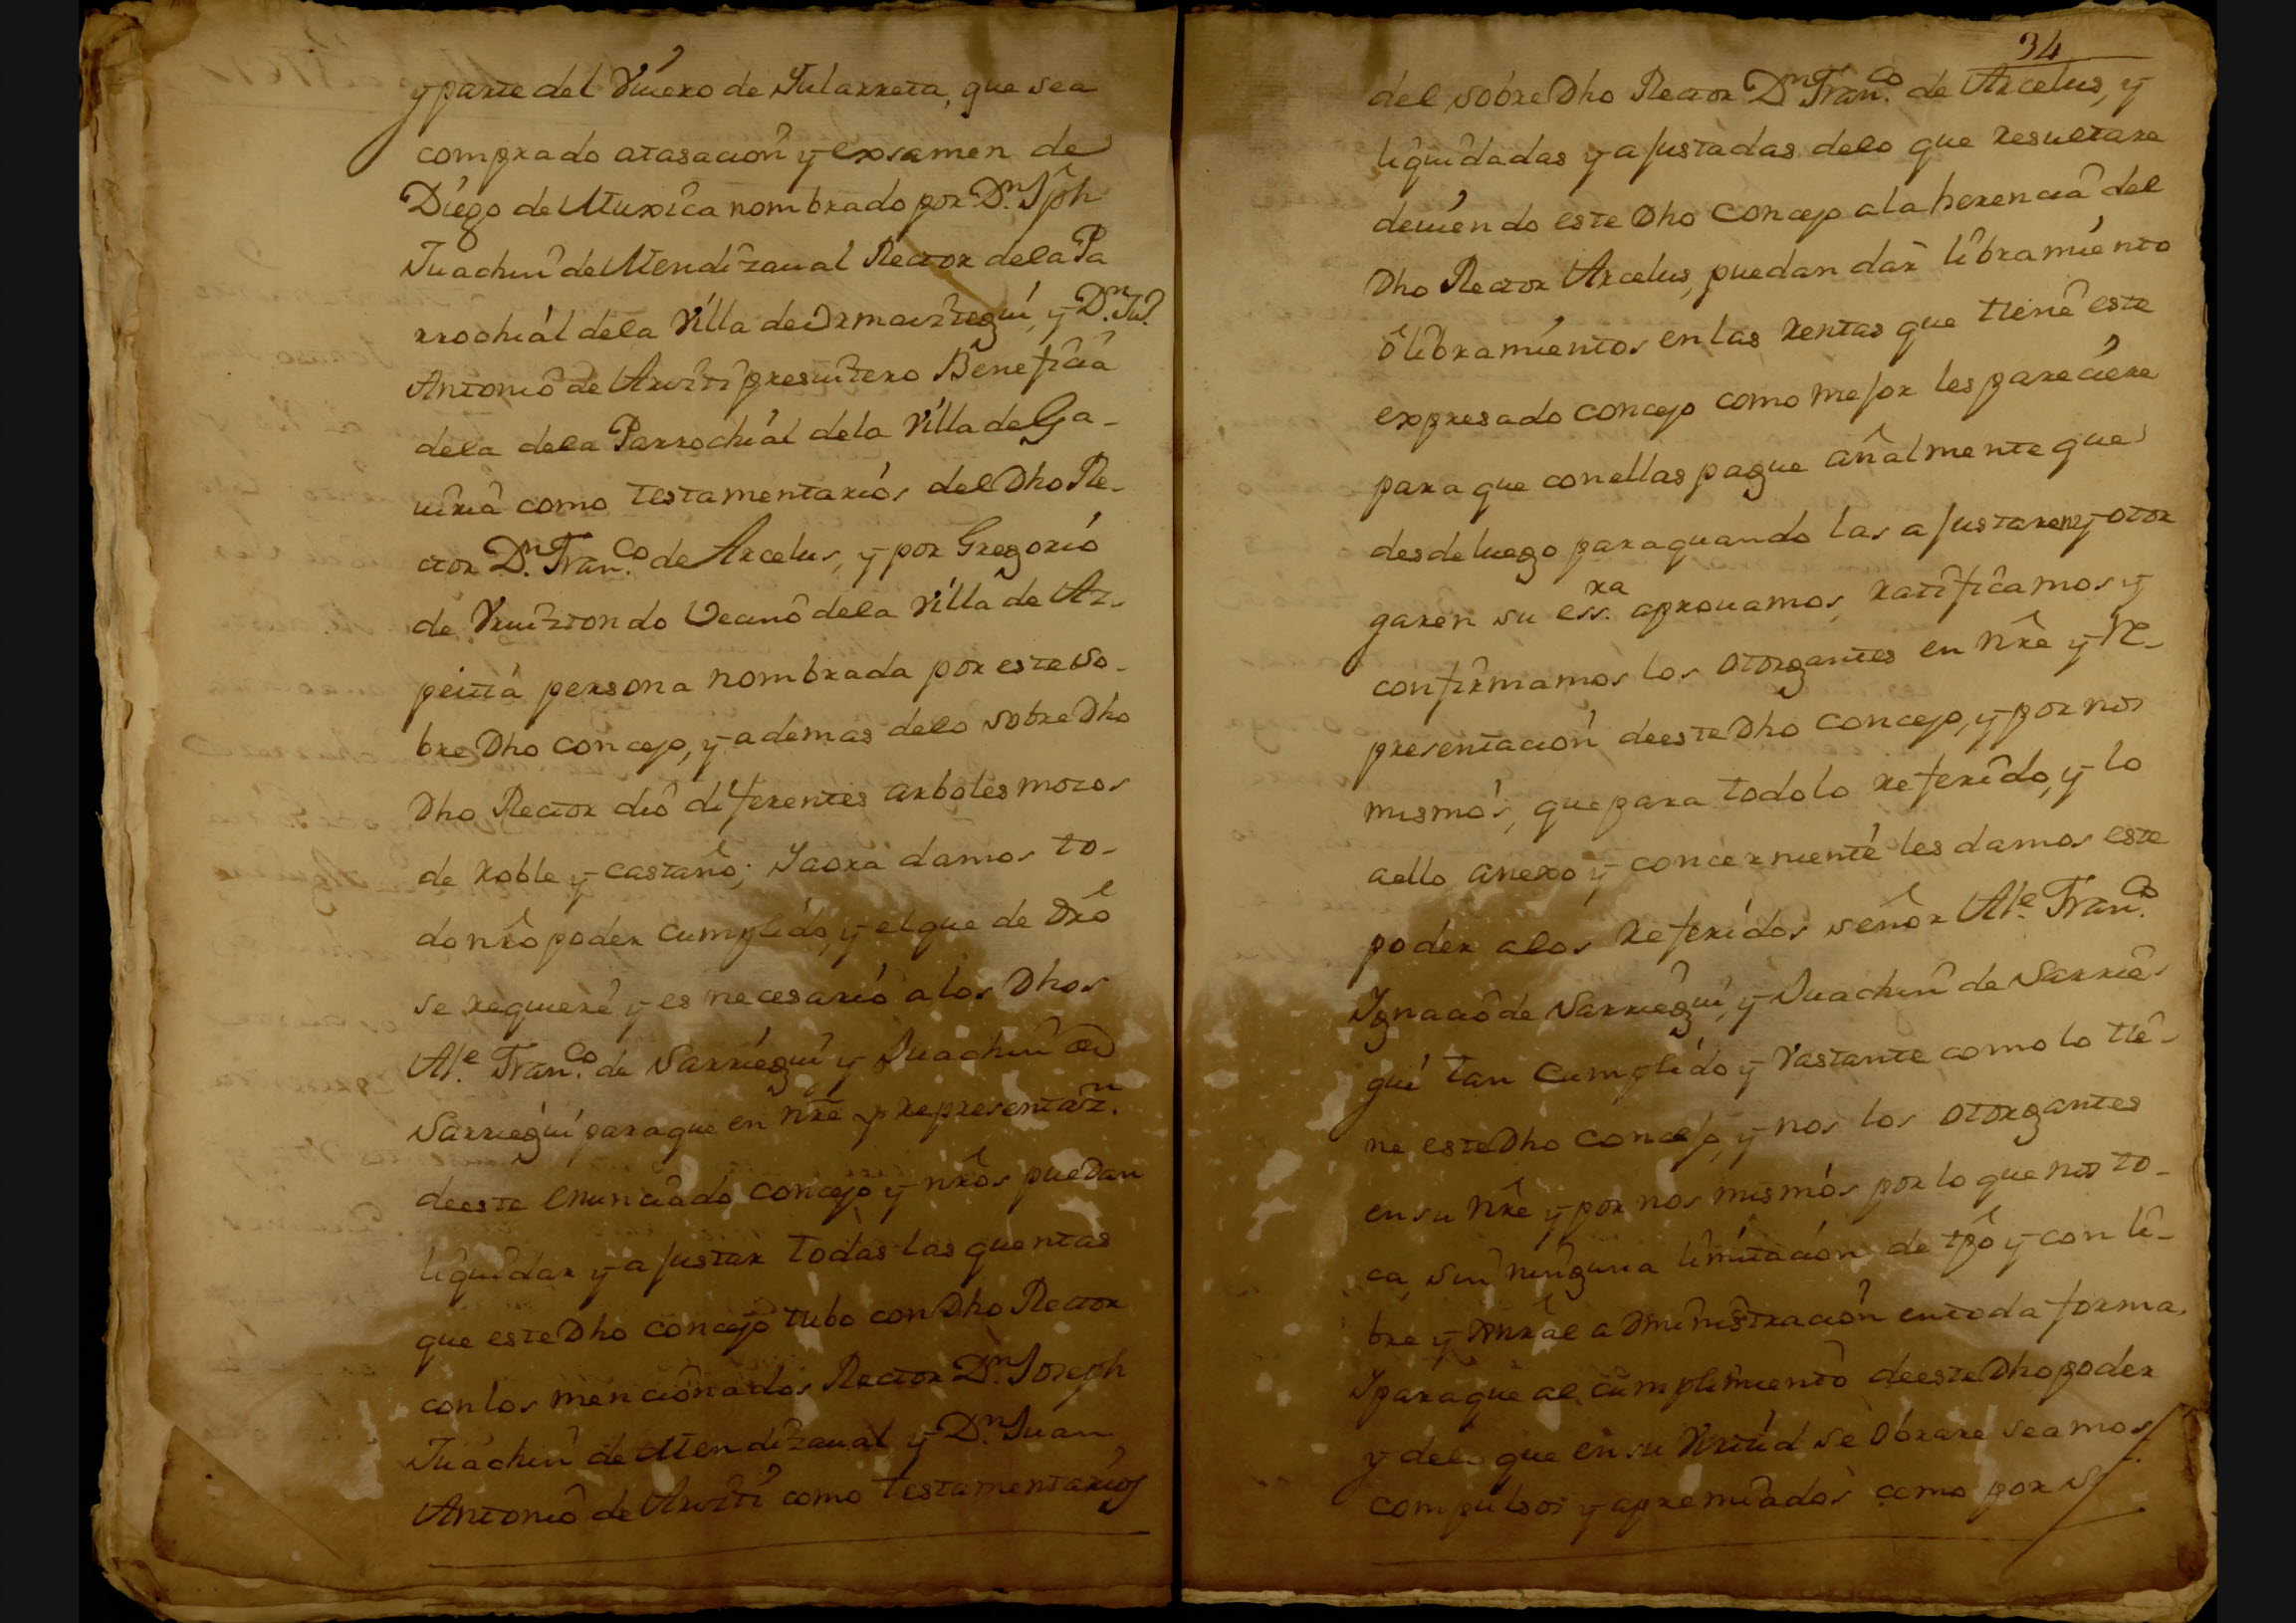 y parte del Viuero de Yularreta, que sea
comprado atasación y exsamen de
Diego de Muxica nombrado por Dn. Jph
Juachin de Mendizaual Rector dela Pa
rrochiál dela Villa de Ormaiztegui, y Dn. Jun.
Antonio de Arviti presuitero Beneficia
dela dela Parrochiál dela Villa de Ga-
uiria como testamentarios del Dho Re-
ctor Dn. Franco. de Arcelus, y por Gregorio
de Vruiztondo Vecino dela Villa de Az-
peitia persona nombrada por este so-
bre Dho concejo, y ademas delo sobre Dho
Dho Rector dió diferentes arboles mozos
de roble y castaño; Yaora damos to-
do nro poder cumplido, y el que de Dro
se requiere y es necesario a los Dhos
Ale. Franco. de Sarriegui y Juachin de
Sarriegui paraque en nre y representazn.
deeste enunciado concejo y nros puedan
liquidar y ajustar todas las quentas
que este Dho concejo tubo con Dho Rector
con los mencionados Rector Dn. Joseph
Juachin de Mendizaual y Dn. Juan
Antonio de Arviti como testamentarios
34
del sobre Dho Rector Dn. Franco. de Arcelus, y
liquidadas y ajustadas delo que resultare
deuiendo este Dho concejo ala herencia del
Dho Rector Arcelus, puedan dar libramiento
ó libramientos en las rentas que tiene este
expresado concejo como mejor les pareciere
para que conellas pague añalmente que
desde luego paraquando las ajustaren y otor
garen su essra. aprouamos, ratificamos y
confirmamos los otorgantes en nre y re-
presentación deeste Dho concejo, y por nos
mismos, que para todo lo referido, y lo
aello anexo y concerniente les damos este
poder alos referidos señor Ale. Franco.
Ygnacio de Sarriegui, y Juachin de Sarrie-
gui tan cumplido y vastante como lo tie-
ne este Dho concejo, y nos los otorgantes
en su nre y por nos mismos por lo que nos to-
ca, sin ninguna limitación de tpo y con li-
bre y gnral administración en toda forma.
Yparaque al cumplimiento deeste Dho poder
y delo que en su virtud se obrare seamos
compulsos y apremiados como por s